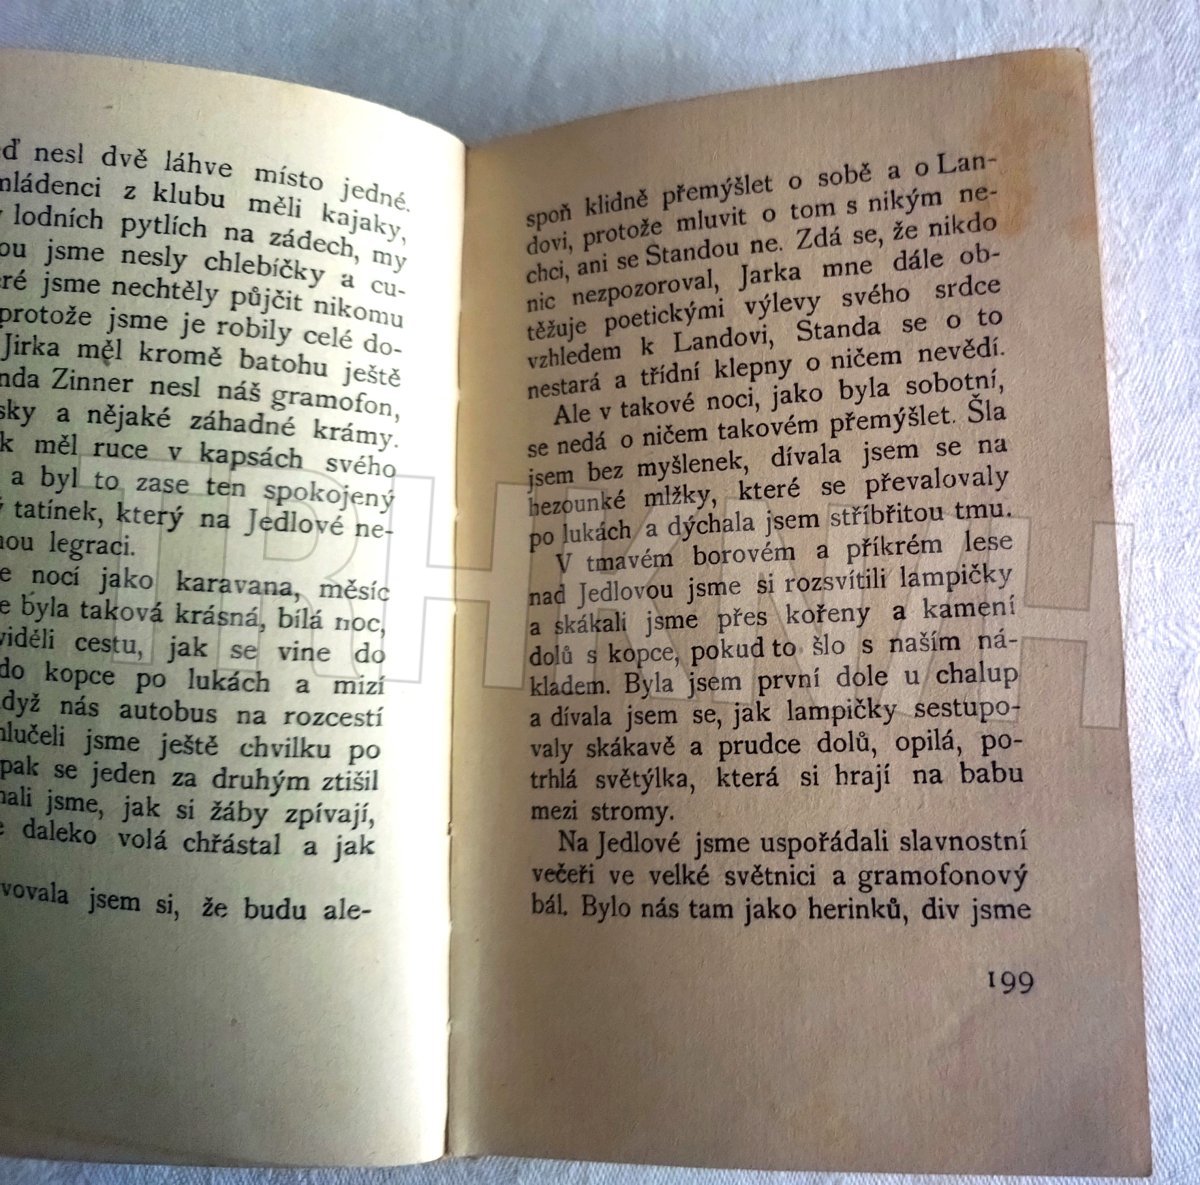 nesl dvě láhve místo jedné.
mládenci z klubu měli kajaky,
lodních pytlích na zádech, my
jsme nesly chlebíčky a cu-
jsme nechtěly půjčit nikomu
protože jsme je robily celé do-
Jirka měl kromě batohu ještě
Zinner nesl náš gramofon,
a nějaké záhadné krámy.
měl ruce v kapsách svého
a byl to zase ten spokojený
tatínek, který na Jedlové ne-
legraci.
nocí jako karavana, měsíc
byla taková krásná, bílá noc,
viděli cestu, jak se vine do
do kopce po lukách a mizí
když nás autobus na rozcestí
hlučeli jsme ještě chvilku po
pak se jeden za druhým ztišil
jsme, jak si žáby zpívají,
daleko volá chřástal a jak
jsem si, že budu ale-
spoň klidně přemýšlet o sobě a o Lan-
dovi, protože mluvit o tom s nikým ne-
chci, ani se Standou ne. Zdá se, že nikdo
nic nezpozoroval, Jarka mne dále ob-
těžuje poetickými výlevy svého srdce
vzhledem k Landovi, Standa se o to
nestará a třídní klepny o ničem nevědí.
Ale v takové noci, jako byla sobotní,
se nedá o ničem takovém přemýšlet. Šla
jsem bez myšlenek, dívala jsem se na
hezounké mlžky, které se převalovaly
po lukách a dýchala jsem stříbřitou tmu.
V tmavém borovém a příkrém lese
nad Jedlovou jsme si rozsvítili lampičky
a skákali jsme přes kořeny a kamení
dolů s kopce, pokud to šlo s naším ná-
kladem. Byla jsem první dole u chalup
a dívala jsem se, jak lampičky sestupo-
valy skákavě a prudce dolů, opilá, po-
trhlá světýlka, která si hrají na babu
mezi stromy.
Na Jedlové jsme uspořádali slavnostní
večeři ve velké světnici a gramofonový
bál. Bylo nás tam jako herinků, div jsme
199